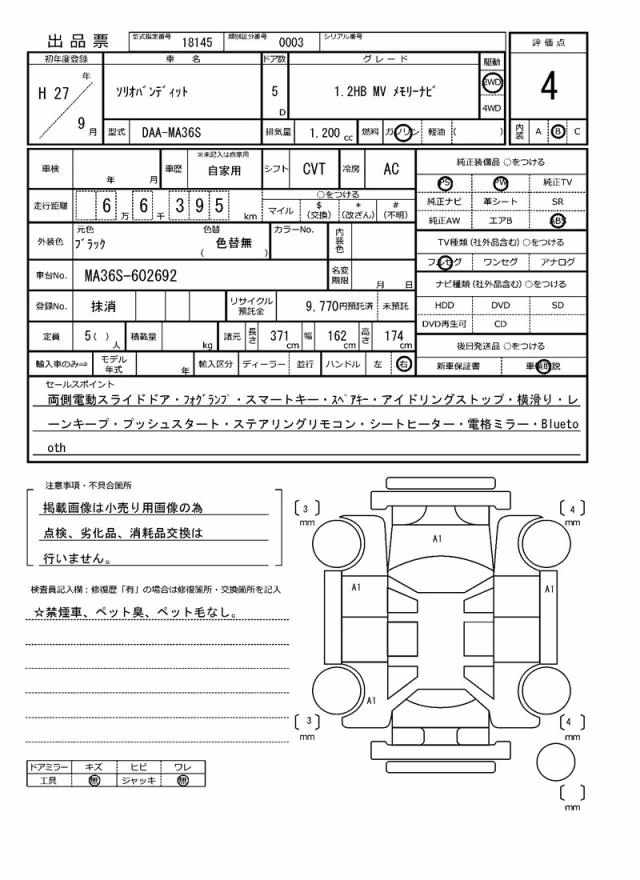 出品票 型式指定番号 18145 類別区分番号 0003 シリアル番号
初年度登録 車名 ドア数 グレード 駆動 評価点
H 27 年 9 月 ソリオバンディット 5 D 1.2HB MV メモリーナビ 2WD 4WD 4
型式 DAA-MA36S 排気量 1.200 cc 燃料 ガソリン 軽油 ( ) 内装 A B C
車検 年 月 車歴 ※未記入は自家用 自家用 シフト CVT 冷房 AC
純正装備品 ○をつける
PS PW 純正TV
純正ナビ 革シート SR
純正AW エアB ABS
走行距離 6 万 6 千 3 9 5 km ○をつける マイル $ (交換) * (改ざん) # (不明)
外装色 元色 ブラック 色替 ( 色替無 ) カラーNo. 内装色
TV種類 (社外品含む) ○をつける
フルセグ ワンセグ アナログ
車台No. MA36S-602692 名変期限 月 日
ナビ種類 (社外品含む) ○をつける
HDD DVD SD
DVD再生可 CD
登録No. 抹消 リサイクル預託金 9,770円預託済 未預託
定員 5 ( ) 人 積載量 kg 諸元 長さ 371 cm 幅 162 cm 高さ 174 cm
後日発送品 ○をつける
輸入車のみ⇒ モデル年式 年 輸入区分 ディーラー 並行 ハンドル 左 右
新車保証書 車輌取説
セールスポイント
両側電動スライドドア・フォグランプ・スマートキー・スペアキー・アイドリングストップ・横滑り・レ
ーンキープ・プッシュスタート・ステアリングリモコン・シートヒーター・電格ミラー・Blueto
oth
注意事項・不具合箇所
掲載画像は小売り用画像の為
点検、劣化品、消耗品交換は
行いません。
検査員記入欄：修復歴「有」の場合は修復箇所・交換箇所を記入
☆禁煙車、ペット臭、ペット毛なし。
3 mm 4 mm
A1
A1 A1
A1
3 mm 4 mm
mm
ドアミラー キズ ヒビ ワレ
工具 無 ジャッキ 無